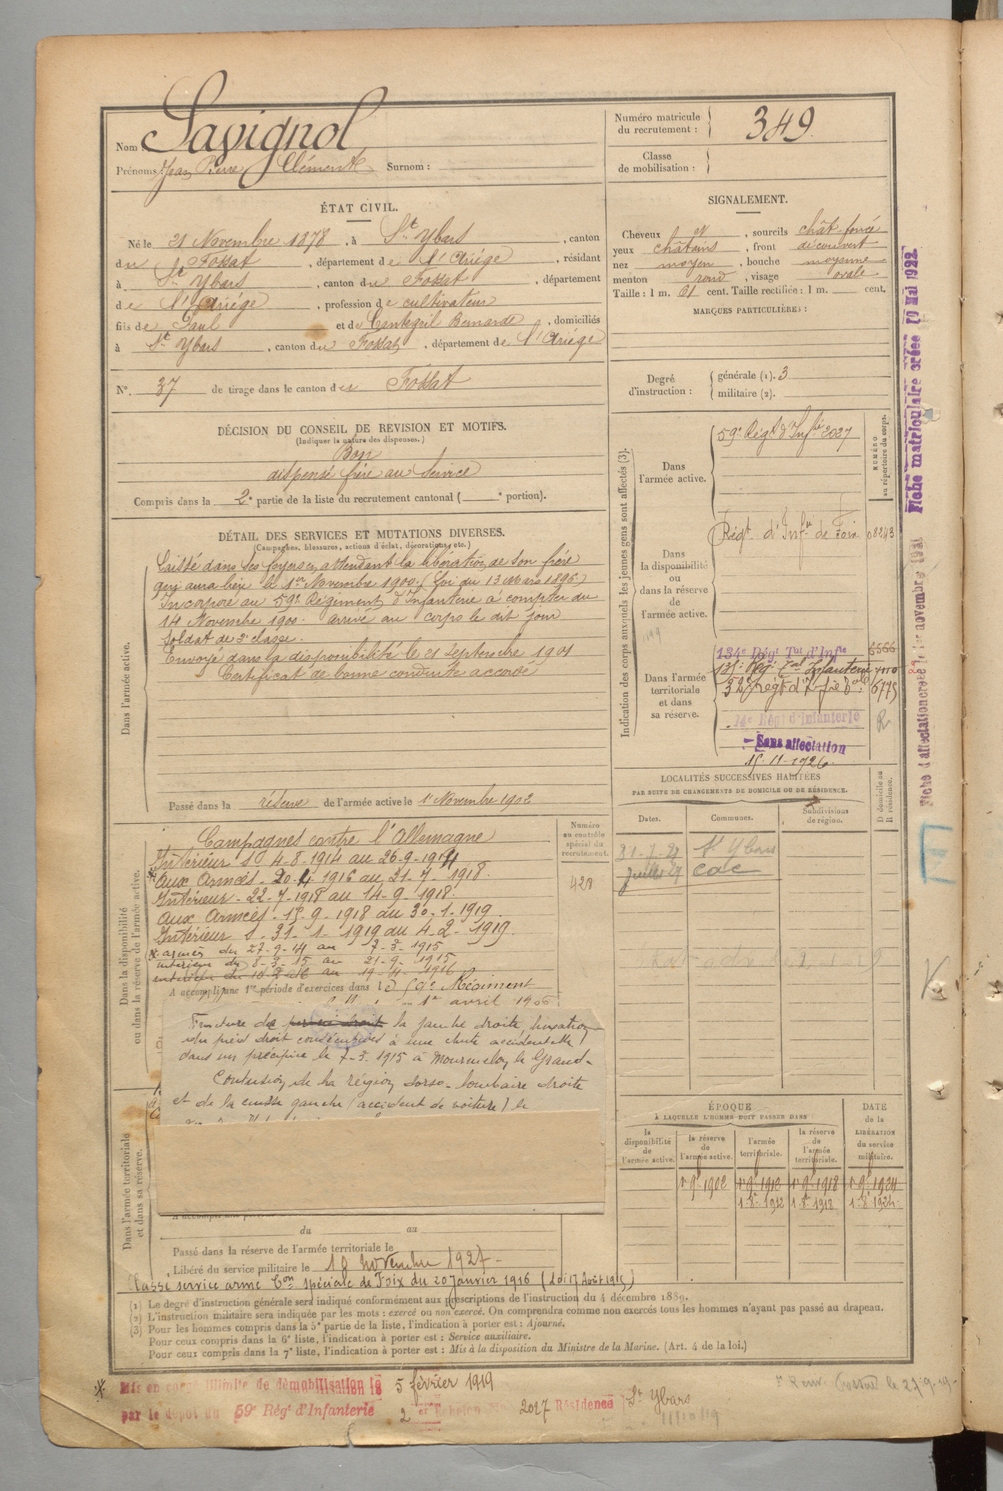 Nom : Savignol
Prénoms Jean Pierre Clément Surnom :
Numéro matricule du recrutement : 349
Classe de mobilisation :
ÉTAT CIVIL.
Né le 21 Novembre 1878, à St Ybars, canton
du Fossat, département de l'Ariège, résidant
à St Ybars, canton du Fossat, département
de l'Ariège, profession de cultivateur
fils de Paul et de Bernarde, domiciliés
à St Ybars, canton du Fossat, département de l'Ariège
N° 37 de tirage dans le canton de Fossat
SIGNALEMENT.
Cheveux et, sourcils chât foncé
yeux châtains, front découvert
nez moyen, bouche moyenne
menton rond, visage ovale
Taille : 1 m. 61 cent. Taille rectifiée : 1 m. cent.
MARQUES PARTICULIÈRES :
Degré d'instruction : générale (1). 3
militaire (2).
DÉCISION DU CONSEIL DE REVISION ET MOTIFS.
(Indiquer la nature des dispenses.)
Bon
dispensé frère au service
Compris dans la 2e partie de la liste du recrutement cantonal ( e portion).
DÉTAIL DES SERVICES ET MUTATIONS DIVERSES.
(Campagnes, blessures, actions d'éclat, décorations, etc.)
Dans l'armée active.
Laissé dans ses foyers, attendant la libération de son frère
qui aura lieu le 1er Novembre 1900. (Loi du 13 Mars 1896)
Incorporé au 59e Régiment d'Infanterie à compter du
14 Novembre 1900. arrivé au corps le dit jour
Soldat de 2e classe.
Envoyé dans la disponibilité le 21 Septembre 1901
Certificat de bonne conduite accordé
Passé dans la réserve de l'armée active le 1er Novembre 1902
Indication des corps auxquels les jeunes gens sont affectés (3).
NUMÉRO au répertoire du corps.
Dans l'armée active. 59e Régt d'Infie 2027
Dans la disponibilité ou dans la réserve de l'armée active. Régt d'Infie de Foix 08243
Dans l'armée territoriale et dans sa réserve.
134e Régt Tal d'Infie
131e Rég Tal Infanterie
14e Rég d'Infanterie
Sans affectation
15-11-1926
Fiche matriculaire créée 10 Mai 1922
LOCALITÉS SUCCESSIVES HABITÉES
PAR SUITE DE CHANGEMENTS DE DOMICILE OU DE RÉSIDENCE.
Dates. Communes. Subdivisions de région. D domicile ou R résidence.
St Ybars
Juillet 27
Dans la disponibilité ou dans la réserve de l'armée active.
Numéro au contrôle spécial du recrutement.
Campagnes contre l'Allemagne
Intérieur S 4-8-1914 au 26-9-1914
Aux Armées - 20-4-1916 au 21-7-1918.
Intérieur - 22-7-1918 au 14-9-1918
Aux Armées - 15-9-1918 au 30-1-1919
Intérieur S - 31-1-1919 au 4-2-1919.
armées du 27-9-14 au 7-3-1915
intérieur du 8-3-15 au 21-9-1915
A accompli une 1re période d'exercices dans le 59e Régiment
1er avril 1906
Fracture de la jambe droite, luxation
du pied droit consécutives à une chute accidentelle
dans un précipice le 7-3-1915 à Mourmelon le Grand.
Contusion de la région dorso-lombaire droite
et de la cuisse gauche (accident de voiture) le
Dans l'armée territoriale et dans sa réserve.
du au
Passé dans la réserve de l'armée territoriale le
Libéré du service militaire le 10 novembre 1927
Classé service armé Con spéciale de Foix du 20 Janvier 1916 (Loi 17 Août 1915)
ÉPOQUE À LAQUELLE L'HOMME DOIT PASSER DANS
la disponibilité de l'armée active. la réserve de l'armée active. l'armée territoriale. la réserve de l'armée territoriale.
DATE de la LIBÉRATION du service militaire.
1er 9bre 1902 1er 9bre 1912 1er 9bre 1918 1er 9bre 1924
(1) Le degré d'instruction générale sera indiqué conformément aux prescriptions de l'instruction du 4 décembre 1889.
(2) L'instruction militaire sera indiquée par les mots : exercé ou non exercé. On comprendra comme non exercés tous les hommes n'ayant pas passé au drapeau.
(3) Pour les hommes compris dans la 5e partie de la liste, l'indication à porter est : Ajourné.
Pour ceux compris dans la 6e liste, l'indication à porter est : Service auxiliaire.
Pour ceux compris dans la 7e liste, l'indication à porter est : Mis à la disposition du Ministre de la Marine. (Art. 4 de la loi.)
Mis en congé illimité de démobilisation le 5 février 1919
par le dépôt du 59e Régt d'Infanterie 2e Échelon No 2027 Résidence St Ybars